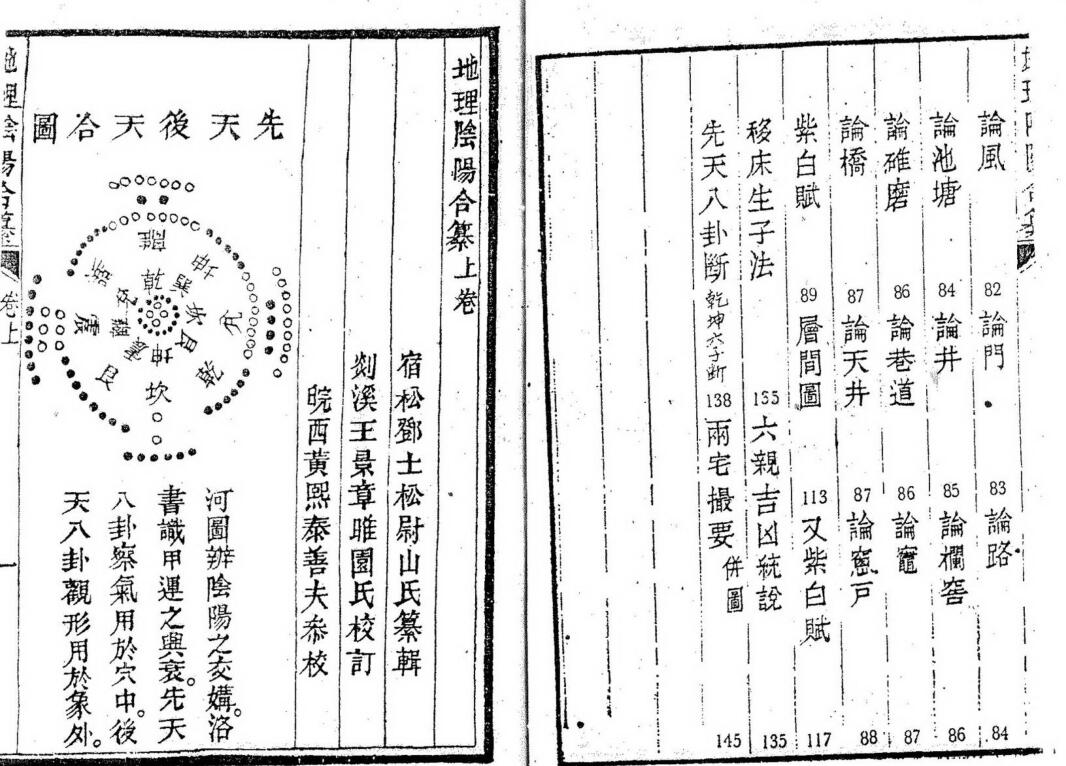 論風 82 論門 83 論路 84
論池塘 84 論井 85 論欄窖 86
論碓磨 86 論巷道 86 論竈 87
論橋 87 論天井 87 論窓戸 88
紫白賦 89 層間圖 113 又紫白賦 117
移床生子法 135 六親吉凶統說 135
先天八卦斷 乾坤六子斷 138 兩宅撮要 併圖 145
地理陰陽合纂上卷
宿松鄧士松尉山氏纂輯
剡溪王景章睢園氏校訂
皖西黃熙泰善夫叅校
先天後天合圖
離
坤
兌
乾
坎
艮
震
巽
乾
巽
坎
艮
坤
震
離
兌
河圖辦陰陽之交媾洛
書識甲運之與衰。先天
八卦察氣用於穴中。後
天八卦觀形用於象外。
地理陰陽合纂 卷上 一